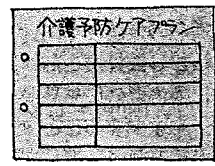 介護予防ケアプラン